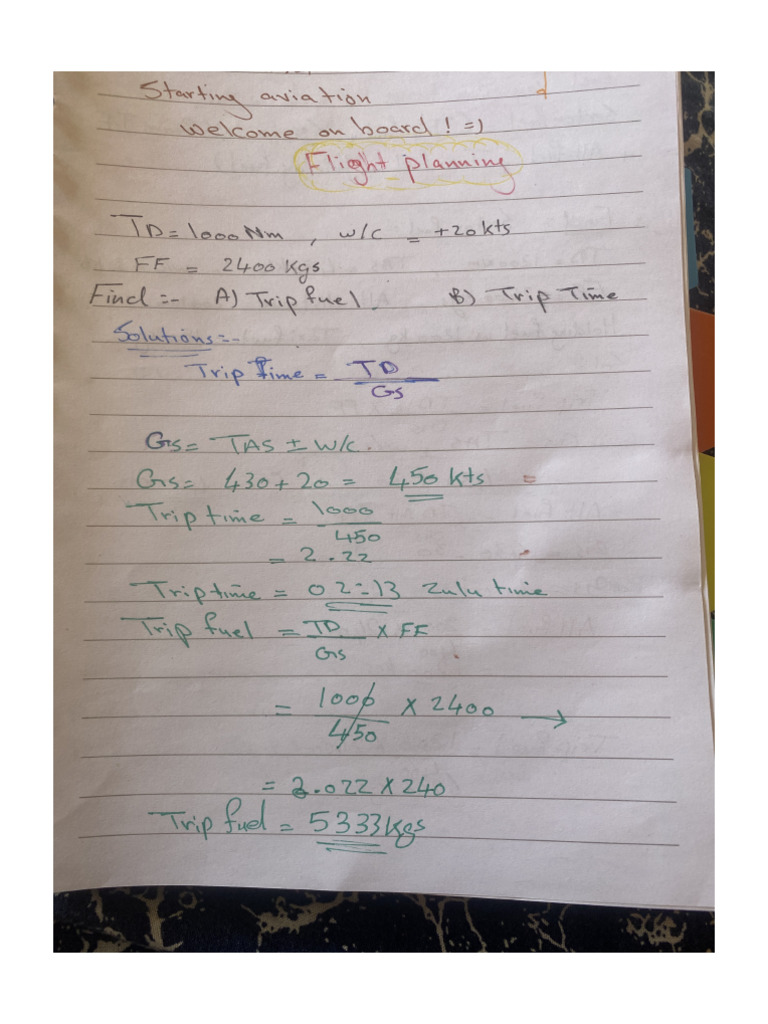 Starting aviation
welcome on board! =)
Flight planning
TD = 1000 Nm , w/c = +20 kts
FF = 2400 Kgs
Find :- A) Trip fuel. B) Trip Time
Solutions :-
Trip Time = TD / Gs
Gs = TAS ± w/c.
Gs = 430 + 20 = 450 kts =
Trip time = 1000 / 450
= 2.22
Trip time = 02:13 Zulu time
Trip fuel = TD / Gs x FF
= 1000 / 450 x 2400 →
= 2.022 x 240
Trip fuel = 5333 kgs